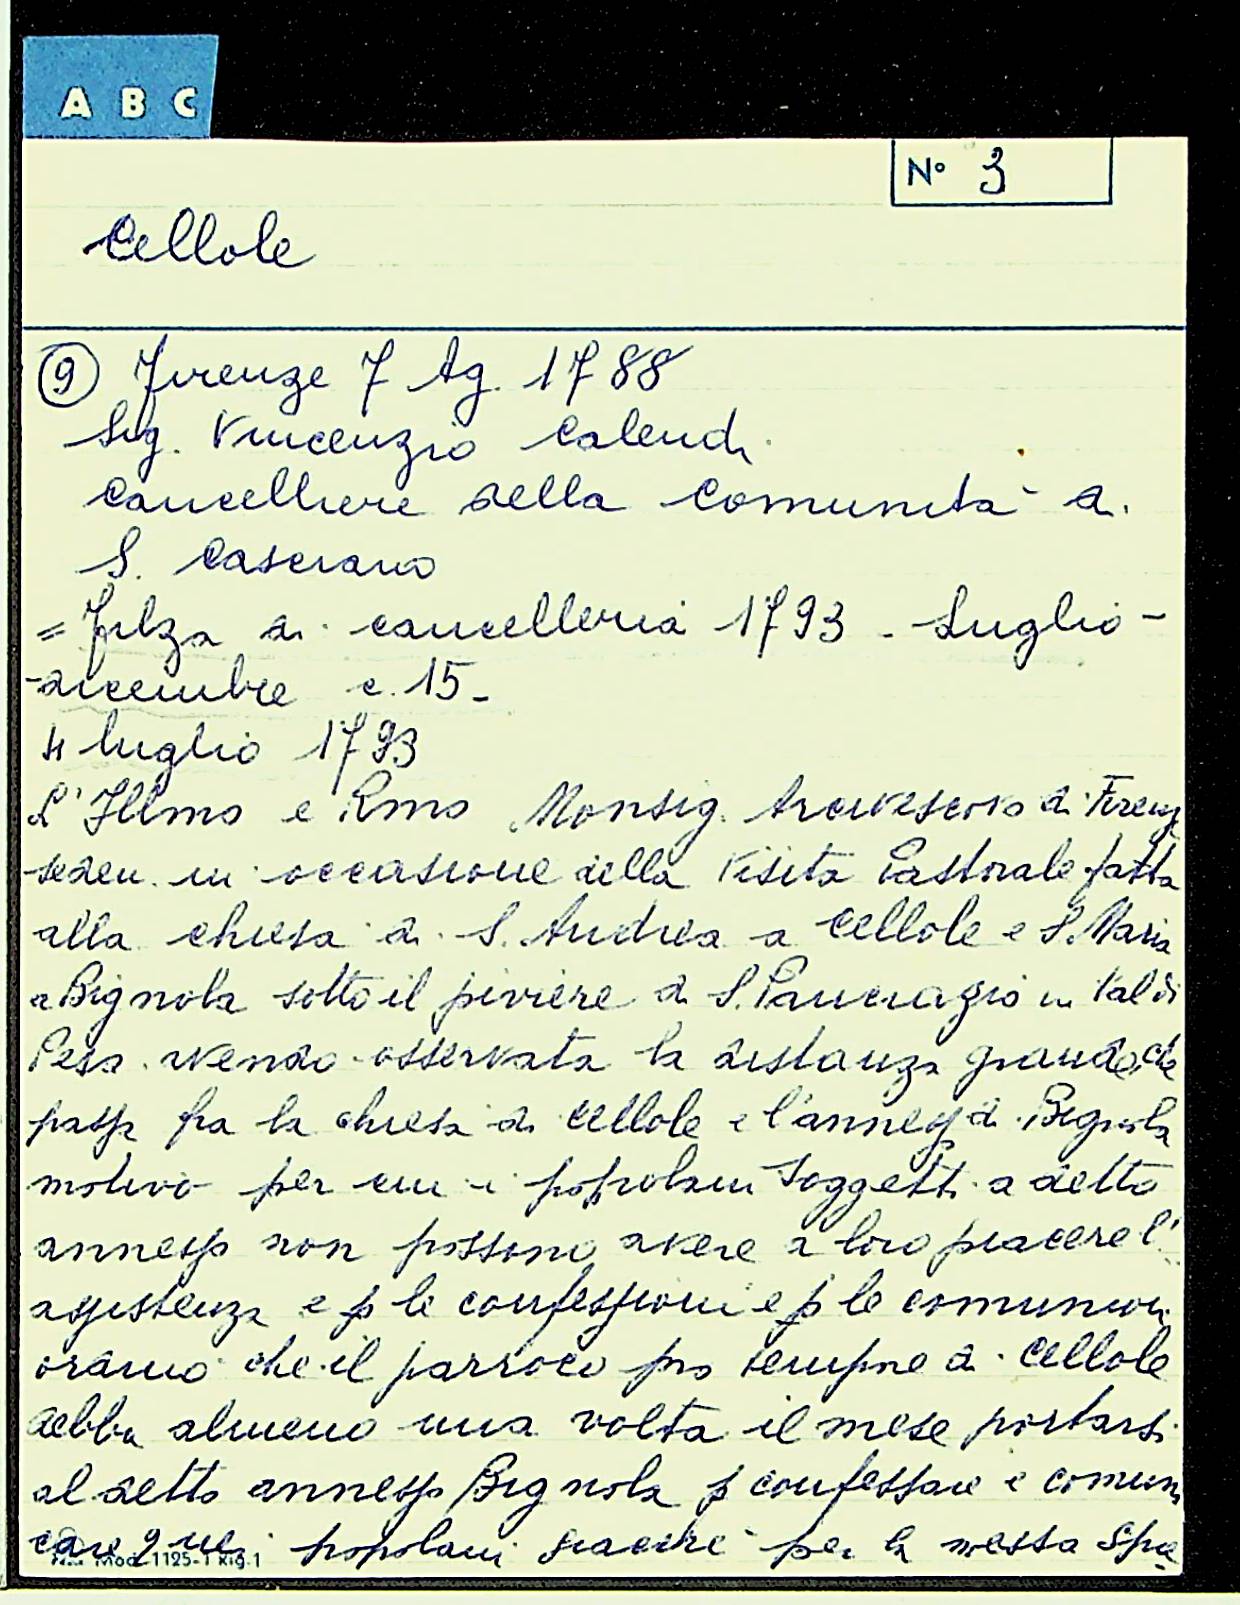 A B C
N° 3
Cellole
9 Firenze 7 Ag. 1788
Sig. Vincenzio Calendi
Cancelliere della Comunità di
S. Casciano
= Filza di cancelleria 1793 - Luglio -
- dicembre c. 15 -
4 luglio 1793
L'Illmo e Rmo Monsig. Arcivescovo di Firenz
in occasione della Visita Pastorale fatta
alla chiesa di S. Andrea a Cellole e S. Maria
a Bignola sotto il piviere di S. Pancrazio in Val di
Pesa avendo osservata la distanza grande che
passa fra la chiesa di Cellole e l'annesso di Bignola
motivo per cui i popolani soggetti a detto
annesso non possono avere a loro piacere l'
assistenza e p le confessioni e p le comunioni
che il parroco pro tempore di Cellole
debba almeno una volta il mese portarsi
al detto annesso Bignola p confessare e comuni
care quei popolani giacchè per la messa
Mod. 1125-1 Rig. 1